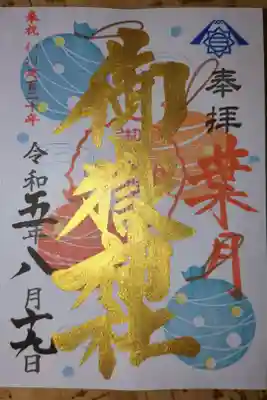 奉拝
葉月
御嶽神社
奉祝
令和五年八月十九日